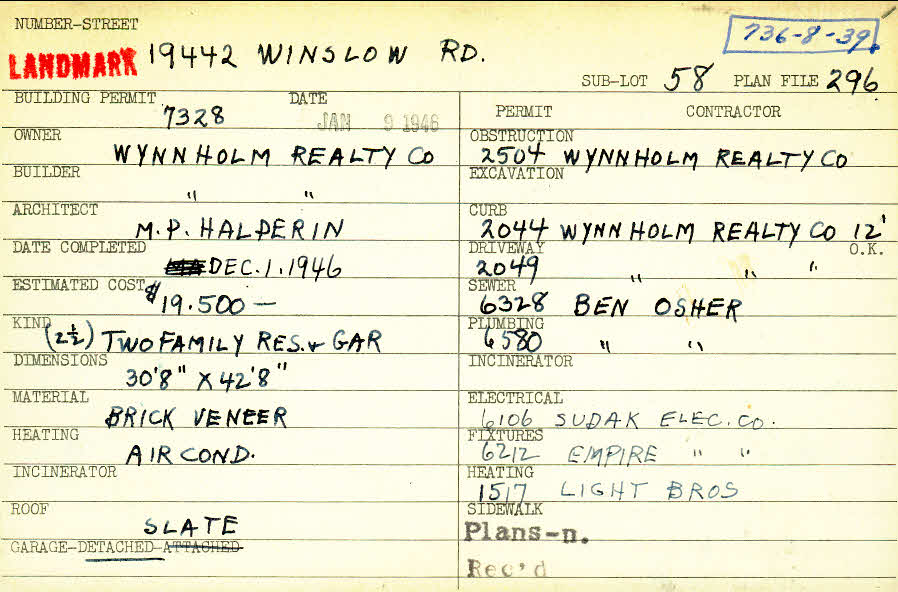 NUMBER-STREET
LANDMARK 19442 WINSLOW RD.
736-8-39.
SUB-LOT 58 PLAN FILE 296
BUILDING PERMIT DATE
7328 JAN 9 1946
OWNER
WYNNHOLM REALTY CO
BUILDER
" "
ARCHITECT
M.P. HALPERIN
DATE COMPLETED
DEC. 1. 1946
ESTIMATED COST
$19.500 —
KIND
(2½) TWO FAMILY RES. & GAR
DIMENSIONS
30'8" X 42'8"
MATERIAL
BRICK VENEER
HEATING
AIR COND.
INCINERATOR
ROOF
SLATE
GARAGE-DETACHED-ATTACHED
PERMIT CONTRACTOR
OBSTRUCTION
2504 WYNNHOLM REALTY CO
EXCAVATION
CURB
2044 WYNNHOLM REALTY CO 12'
DRIVEWAY O.K.
2049 " " "
SEWER
6328 BEN OSHER
PLUMBING
6580 " "
INCINERATOR
ELECTRICAL
6106 SUDAK ELEC. CO.
FIXTURES
6212 EMPIRE " "
HEATING
1517 LIGHT BROS
SIDEWALK
Plans-n.
Rec'd